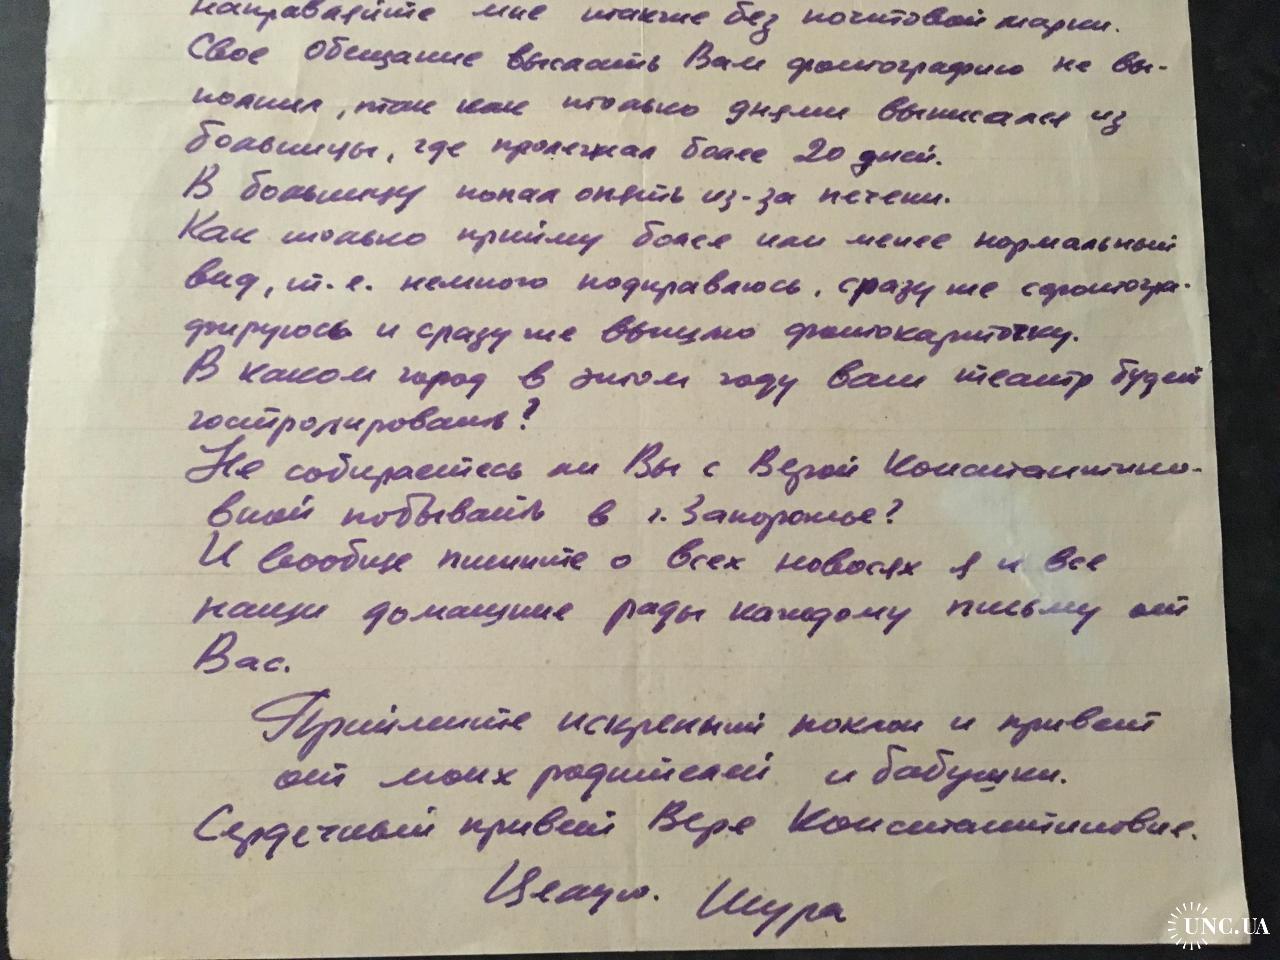 направляйте мне также без почтовой марки.
Свое обещание выслать Вам фотографию не вы-
полнил, так как только днями выписался из
больницы, где пролежал более 20 дней.
В больницу попал опять из-за печени.
Как только прийму более или менее нормальный
вид, т.е. немного подправлюсь, сразу же сфотогра-
фируюсь и сразу же вышлю фотокарточку.
В каком город в этом году ваш театр будет
гострлировать?
Не собираетесь ли Вы с Верой Константино-
вной побывать в г. Запорожье?
И вообще пишите о всех новосях я и все
наши домашние рады каждому письму от
Вас.
Прийміте искренний поклон и привет
от моих родителей и бабушки.
Сердечный привет Вере Константиновне.
Целую. Шура
UNC.UA